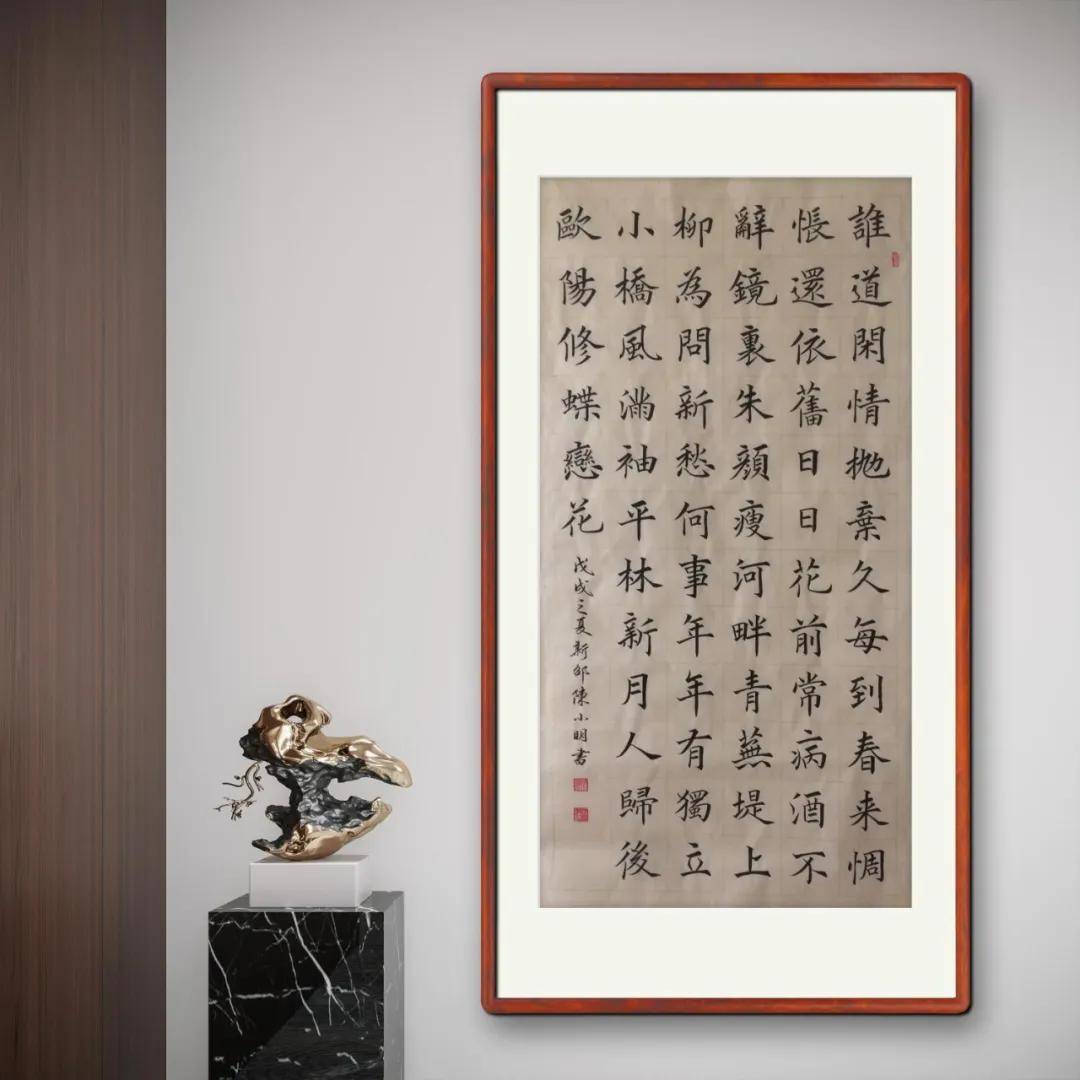 誰道閑情抛棄久每到春来惆
悵還依舊日日花前常病酒不
辭鏡裏朱顏瘦河畔青蕪堤上
柳為問新愁何事年年有獨立
小橋風滿袖平林新月人歸後
歐陽修蝶戀花
戊戌之夏新邵陳小明書